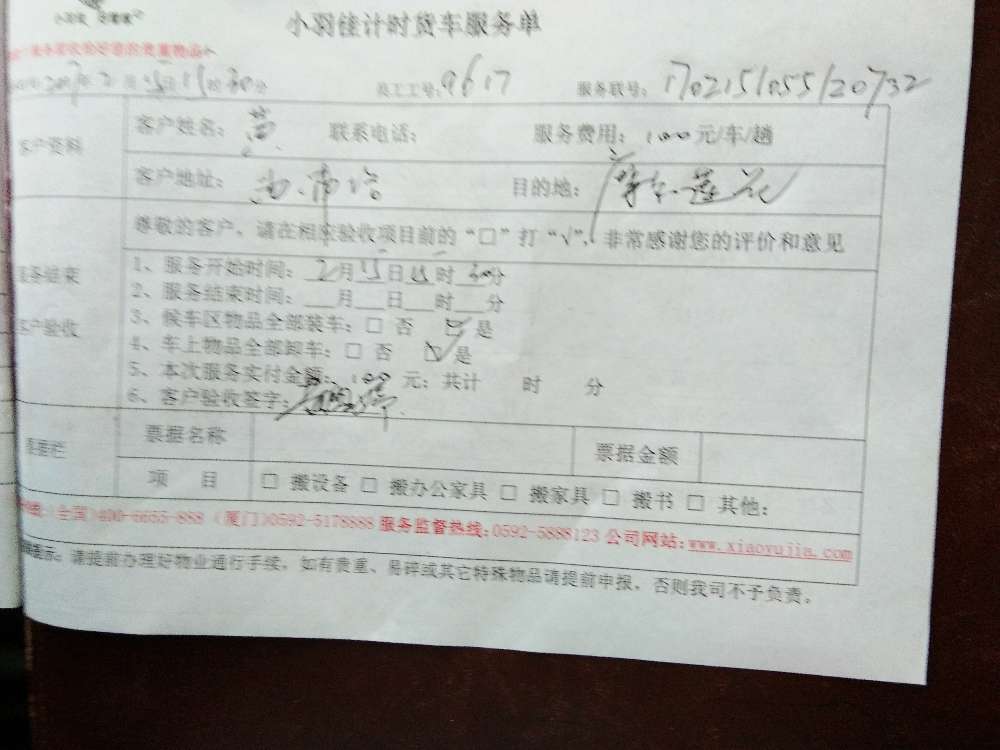 小羽佳计时货车服务单
2017年2月15日15时30分 员工工号:9617 服务联号:170215105512073２
客户资料 客户姓名: 联系电话: 服务费用:100元/车/趟
客户地址: 目的地:
尊敬的客户，请在相应验收项目前的“□”打“√”，非常感谢您的评价和意见
服务结束
客户验收
1、服务开始时间:2月15日15时30分
2、服务结束时间:___月___日___时___分
3、候车区物品全部装车:□ 否 ☑ 是
4、车上物品全部卸车:□ 否 ☑ 是
5、本次服务实付金额:100元；共计 时 分
6、客户验收签字:
票据栏 票据名称 票据金额
项 目 □ 搬设备 □ 搬办公家具 □ 搬家具 □ 搬书 □ 其他:
(全国)400-6655-888 (厦门)0592-5178888 服务监督热线:0592-5888123 公司网站:www.xiaoyujia.com
请提前办理好物业通行手续，如有贵重、易碎或其它特殊物品请提前申报，否则我司不予负责。